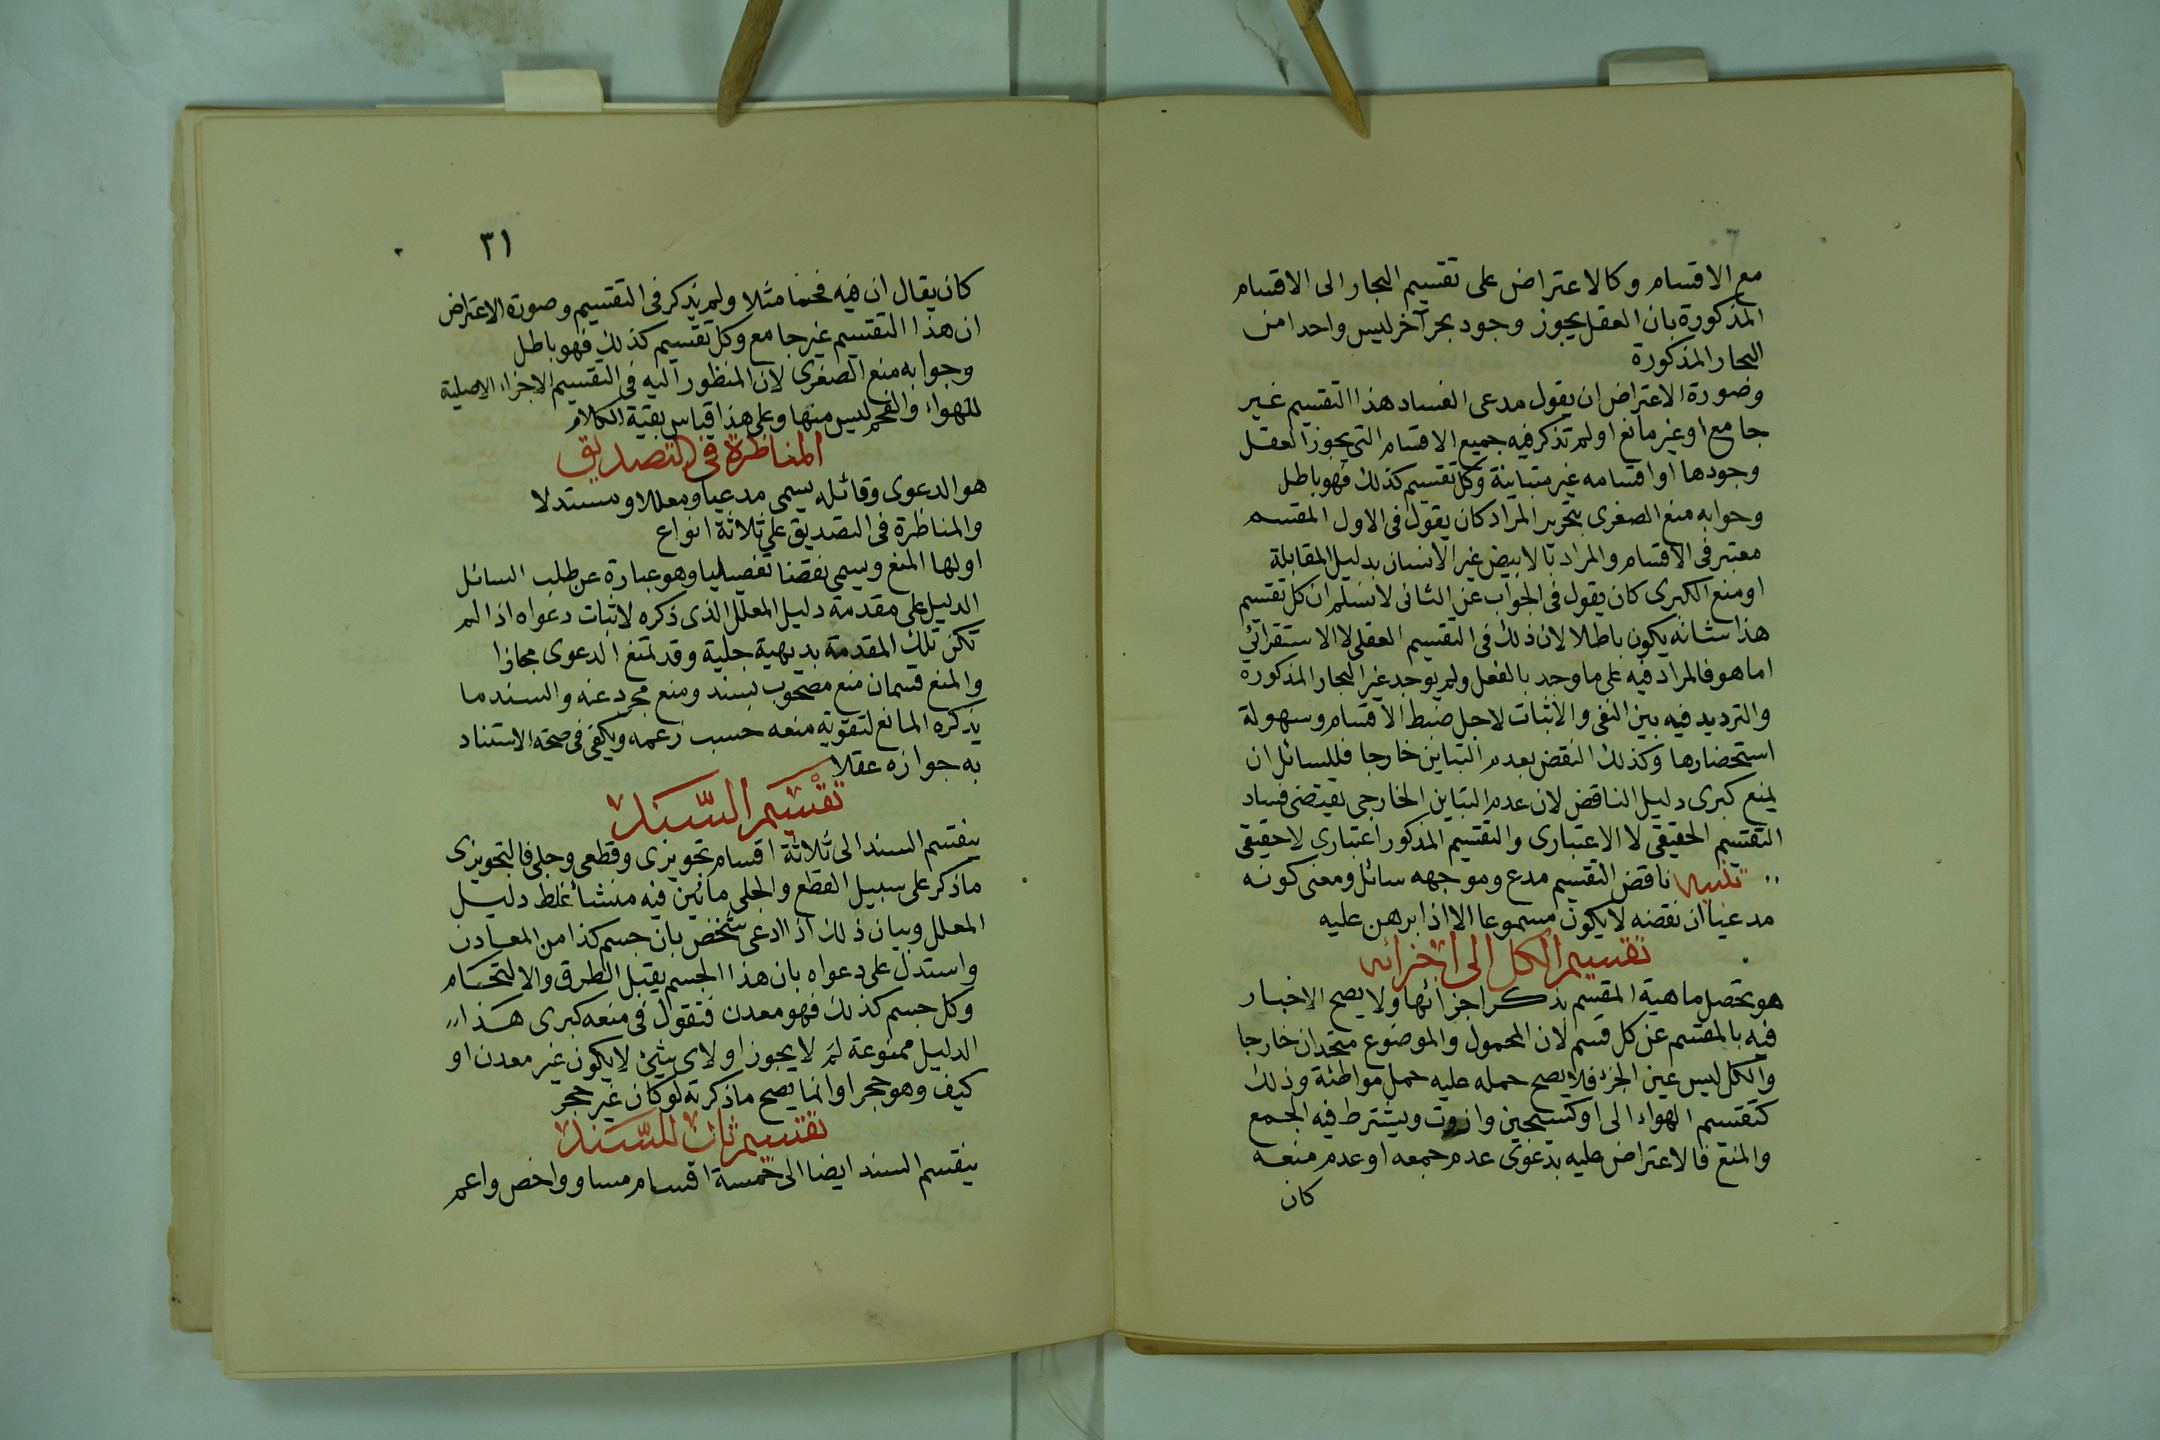 مع الاقسام وكالاعتراض على تقسيم البحار الى الاقسام
المذكورة بان العقل يجوز وجود بحر آخر ليس واحدا من
البحار المذكورة
وصورة الاعتراض ان يقول مدعى الفساد هذا التقسيم غير
جامع او غير مانع او لم تذكر فيه جميع الاقسام التى يجوز العقل
وجودها او اقسامه غير متباينة وكل تقسيم كذلك فهو باطل
وجوابه منع الصغرى بتحرير المراد كان يقول فى الاول المقسم
معتبر فى الاقسام والمراد بالابيض غير الانسان بدليل المقابلة
او منع الكبرى كان يقول فى الجواب عن الثانى لا نسلم ان كل تقسيم
هذا شانه يكون باطلا لان ذلك فى التقسيم العقلى لا الاستقرائى
اما هو فالمراد فيه على ما وجد بالفعل ولم يوجد غير البحار المذكورة
والترديد فيه بين النفى والاثبات لاجل ضبط الاقسام وسهولة
استحضارها وكذلك النقض بعدم التباين خارجا فللسائل ان
يمنع كبرى دليل الناقض لان عدم التباين الخارجى يقتضى فساد
التقسيم الحقيقى لا الاعتبارى والتقسيم المذكور اعتبارى لا حقيقى
تنبيه ناقض التقسيم مدع وموجهه سائل ومعنى كونه
مدعيا ان نقضه لا يكون مسموعا الا اذا برهن عليه
تقسيم الكل الى اجزائه
هو تحصل ماهية المقسم بذكر اجزائها ولا يصح الاخبار
فيه بالمقسم عن كل قسم لان المحمول والموضوع متحدان خارجا
والكل ليس عين الجزء فلا يصح حمله عليه حمل مواطئة وذلك
كتقسيم الهواء الى اوكسيجين وازوت ويشترط فيه الجمع
والمنع فالاعتراض عليه بدعوى عدم جمعه او عدم منعه
كان
٣١
كان يقال ان فيه فحما مثلا ولم يذكر فى التقسيم وصورة الاعتراض
ان هذا التقسيم غير جامع وكل تقسيم كذلك فهو باطل
وجوابه منع الصغرى لان المنظور اليه فى التقسيم الاجزاء الاصلية
للهواء والفحم ليس منها وعلى هذا قياس بقية الكلام
المناظرة فى التصديق
هو الدعوى وقائله يسمى مدعيا ومعللا ومستدلا
والمناظرة فى التصديق على ثلاثة انواع
اولها المنع ويسمى نقضا تفصيليا وهو عبارة عن طلب السائل
الدليل على مقدمة دليل المعلل الذى ذكره لاثبات دعواه اذا لم
تكن تلك المقدمة بديهية جلية وقد تمنع الدعوى مجازا
والمنع قسمان منع مصحوب بسند ومنع مجرد عنه والسند ما
يذكره المانع لتقوية منعه حسب زعمه ويكفى فى صحة الاستناد
به جوازه عقلا
تقسيم السند
ينقسم السند الى ثلاثة اقسام تجويزى وقطعى وحلى فالتجويزى
ماذكر على سبيل القطع والحلى ما تبين فيه منشأ غلط دليل
المعلل وبيان ذلك اذا ادعى شخص بان جسم كذا من المعادن
واستدل على دعواه بان هذا الجسم يقبل الطرق والالتحام
وكل جسم كذلك فهو معدن فتقول فى منعه كبرى هذا
الدليل ممنوعة لم لا يجوز او لاى شئ لا يكون غير معدن او
كيف وهو حجر او انما يصح ما ذكرته لو كان غير حجر
تقسيم ثان للسند
ينقسم السند ايضا الى خمسة اقسام مساو واخص واعم